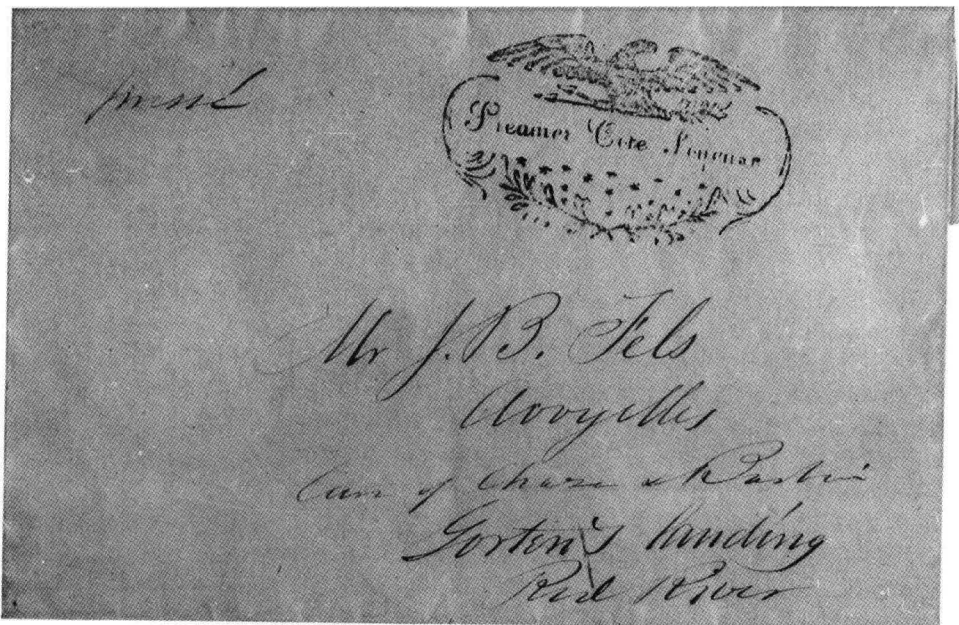 Steamer Cote Joyeuse
Mr J. B. Fels
Avoyelles
Care of Chase &
Gorton's landing
Red River